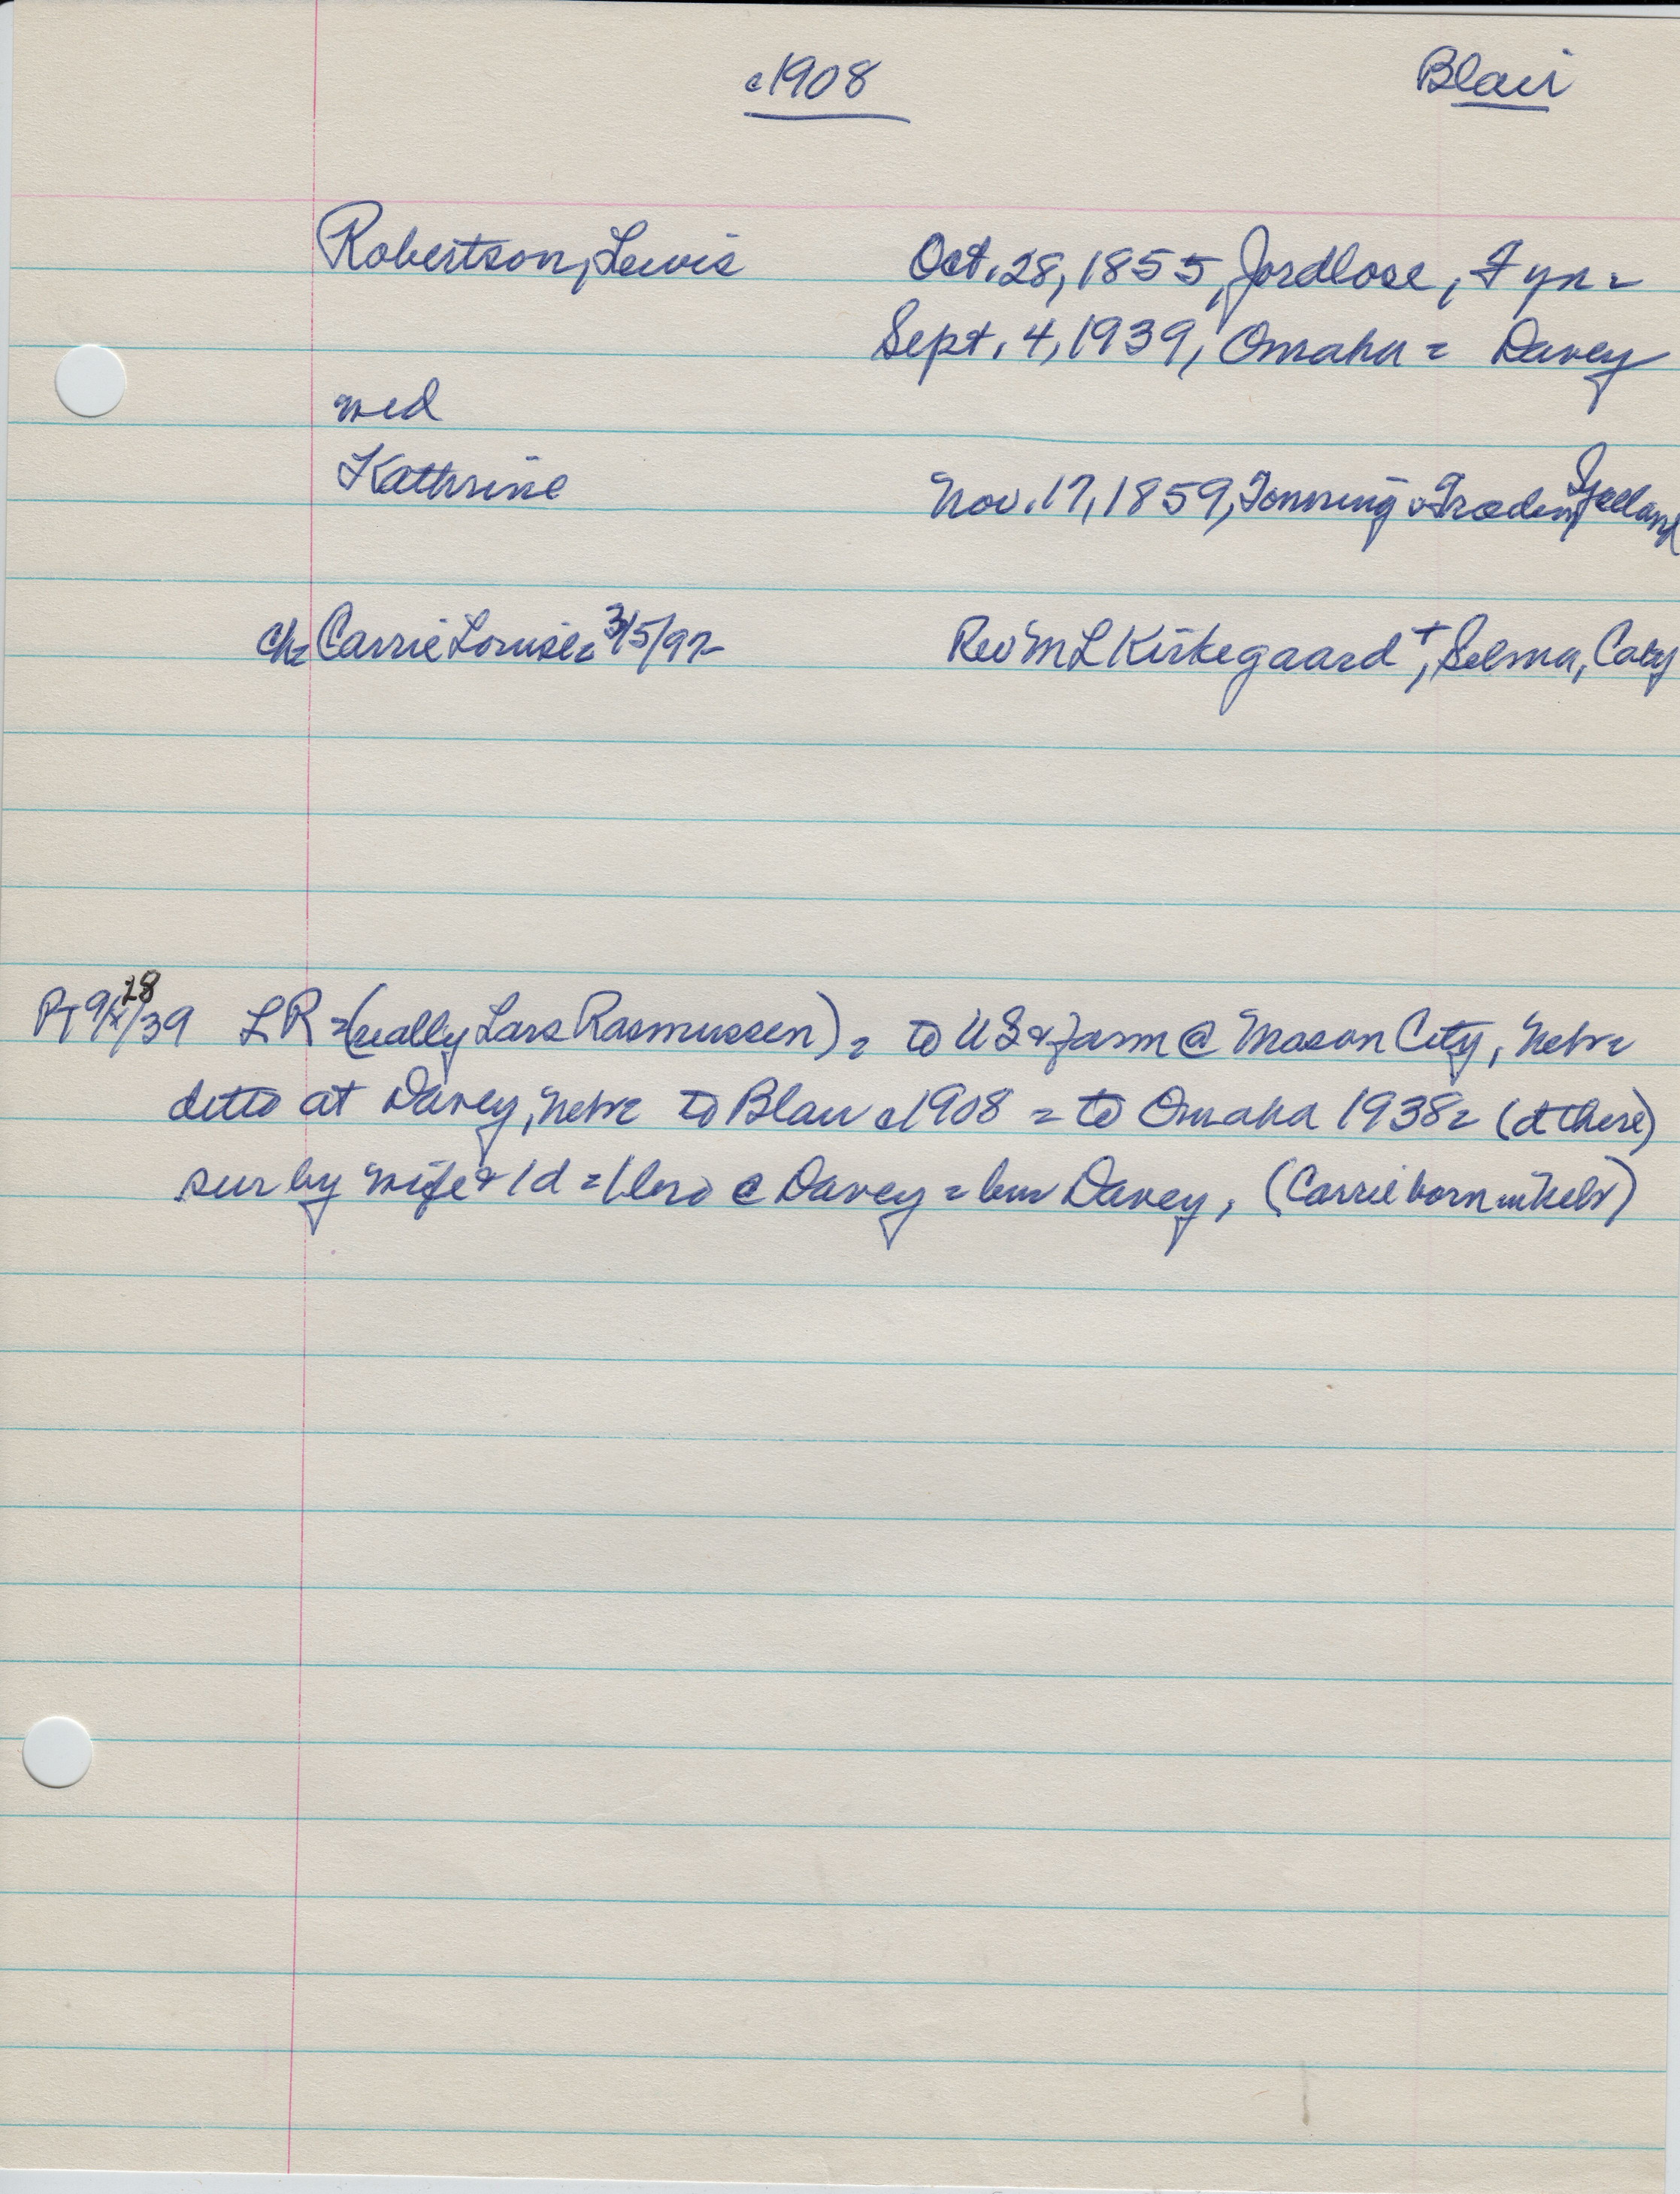 c1908 Blair
Robertson, Lewis Oct. 28, 1855, Jordlose, Fyn =
Sept. 4, 1939, Omaha = Davey
wed
Kathrine Nov. 17, 1859, Tønning & Træden Sjælland
ch= Carrie Louise = 3/5/92 - Rev M L Kirkegaard +, Selma, Caly
PT 9/28/39 LR = (really Lars Rasmussen) = to US & farm @ Mason City, Nebr =
ditto at Davey, Nebr = to Blair c1908 = to Omaha 1938 = (d there)
sur by wife & 1 d = 1 bro @ Davey = bur Davey, (Carrie born in Nebr)